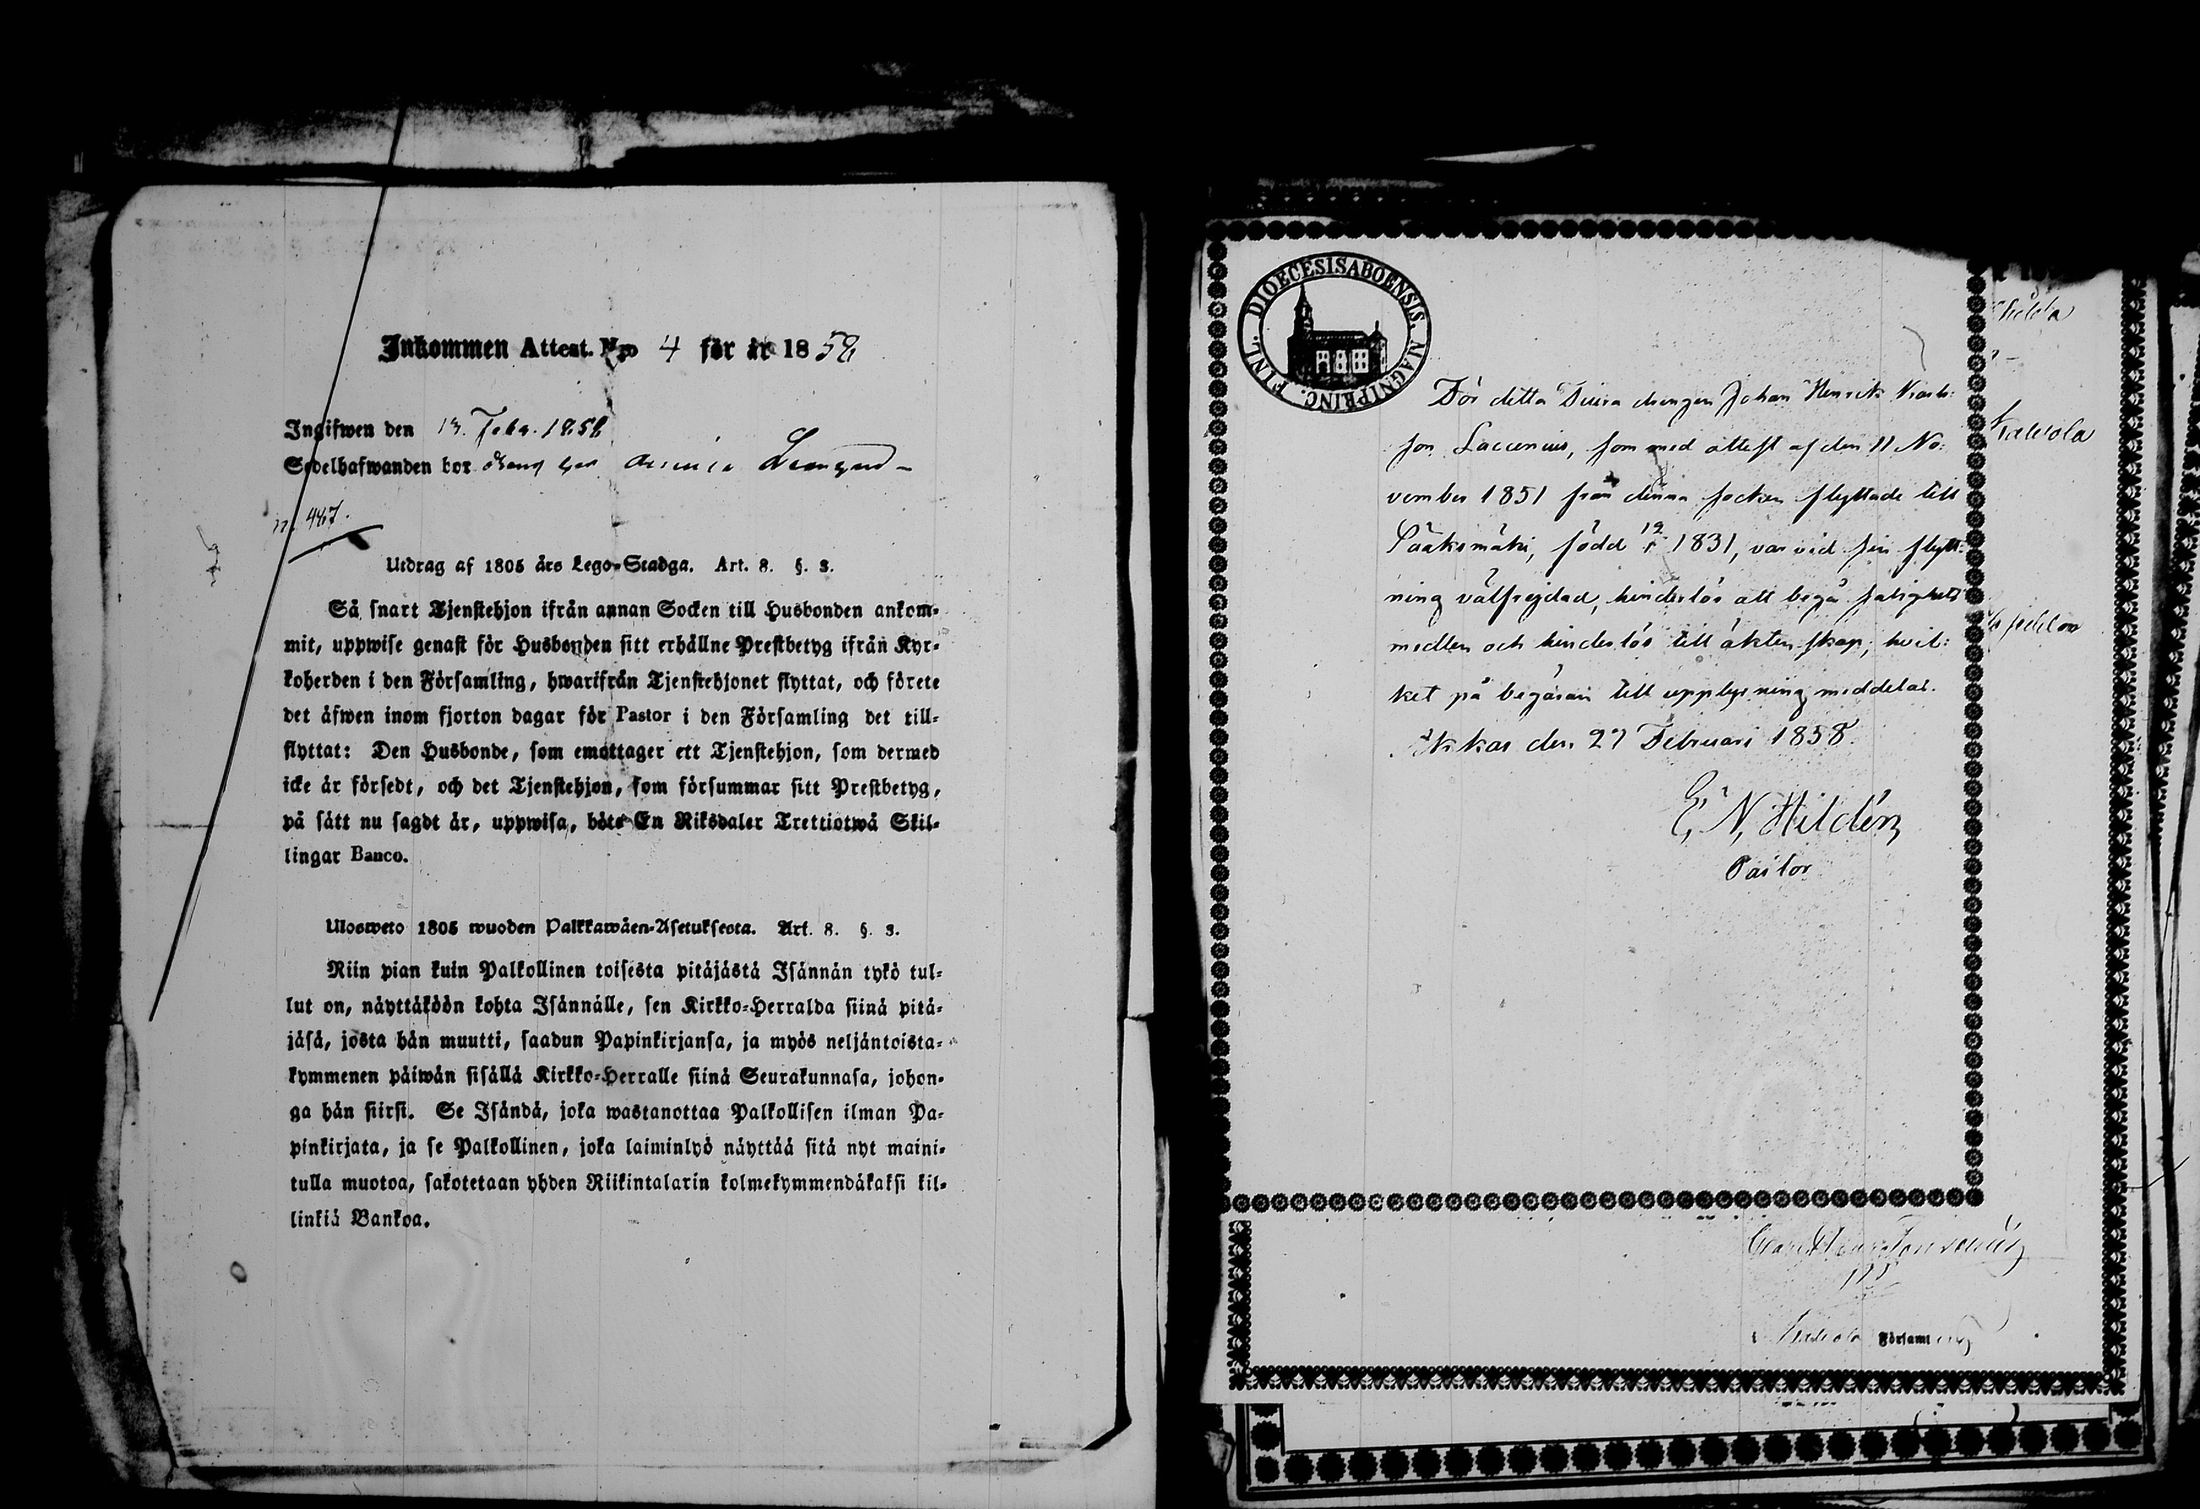 Inkommen Attest. Nro 4 för år 1858
Ingifwen den 13. Febr. 1858
Sedelhafwanden bor
n. 467.
Utdrag af 1805 års Lego-Stadga. Art. 8. §. 3.
Så snart Tjenstehjon ifrån annan Socken till Husbonden ankom-
mit, uppwise genast för Husbonden sitt erhållne Prestbetyg ifrån Kyr-
koherden i den Församling, hwarifrån Tjenstehjonet flyttat, och förete
det äfwen inom fjorton dagar för Pastor i den Församling det till-
flyttat: Den Husbonde, som emottager ett Tjenstehjon, som dermed
icke är försedt, och det Tjenstehjon, som försummar sitt Prestbetyg,
på sätt nu sagdt är, uppwisa, böte En Riksdaler Trettiotwå Skil-
lingar Banco.
Ulosweto 1805 wuoden Palkkawäen-Asetuksesta. Art. 8. §. 3.
Niin pian kuin Palkollinen toisesta pitäjästä Isännän tykö tul-
lut on, näyttäköön kohta Isännälle, sen Kirkko-Herralda siinä pitä-
jäsä, josta hän muutti, saadun Papinkirjansa, ja myös neljäntoista-
kymmenen päiwän sisällä Kirkko-Herralle siinä Seurakunnasa, johon-
ga hän siirsi. Se Isändä, joka wastanottaa Palkollisen ilman Pa-
pinkirjata, ja se Palkollinen, joka laiminlyö näyttää sitä nyt maini-
tulla muotoa, sakotetaan yhden Riikintalarin kolmekymmendäkaksi kil-
linkiä Bankoa.
DIOECESIS ABOENSIS. MAGNI PRINC. FINL.
För detta Duva drengen Johan Henrik
son Laccenius, som med attest af den 11 No-
vember 1851 från denna socken flyttade till
Sääksmäki, född 1831, var vid sin flytt-
ning välfrejdad, hinderlös att begå salighets
medlen och hinderlös till äktenskap; hvil-
ket på begäran till upplysning meddelas.
den 27 Februari 1858.
E. N. Hildén
Pastor
Kalvola
i Kalvola Församling